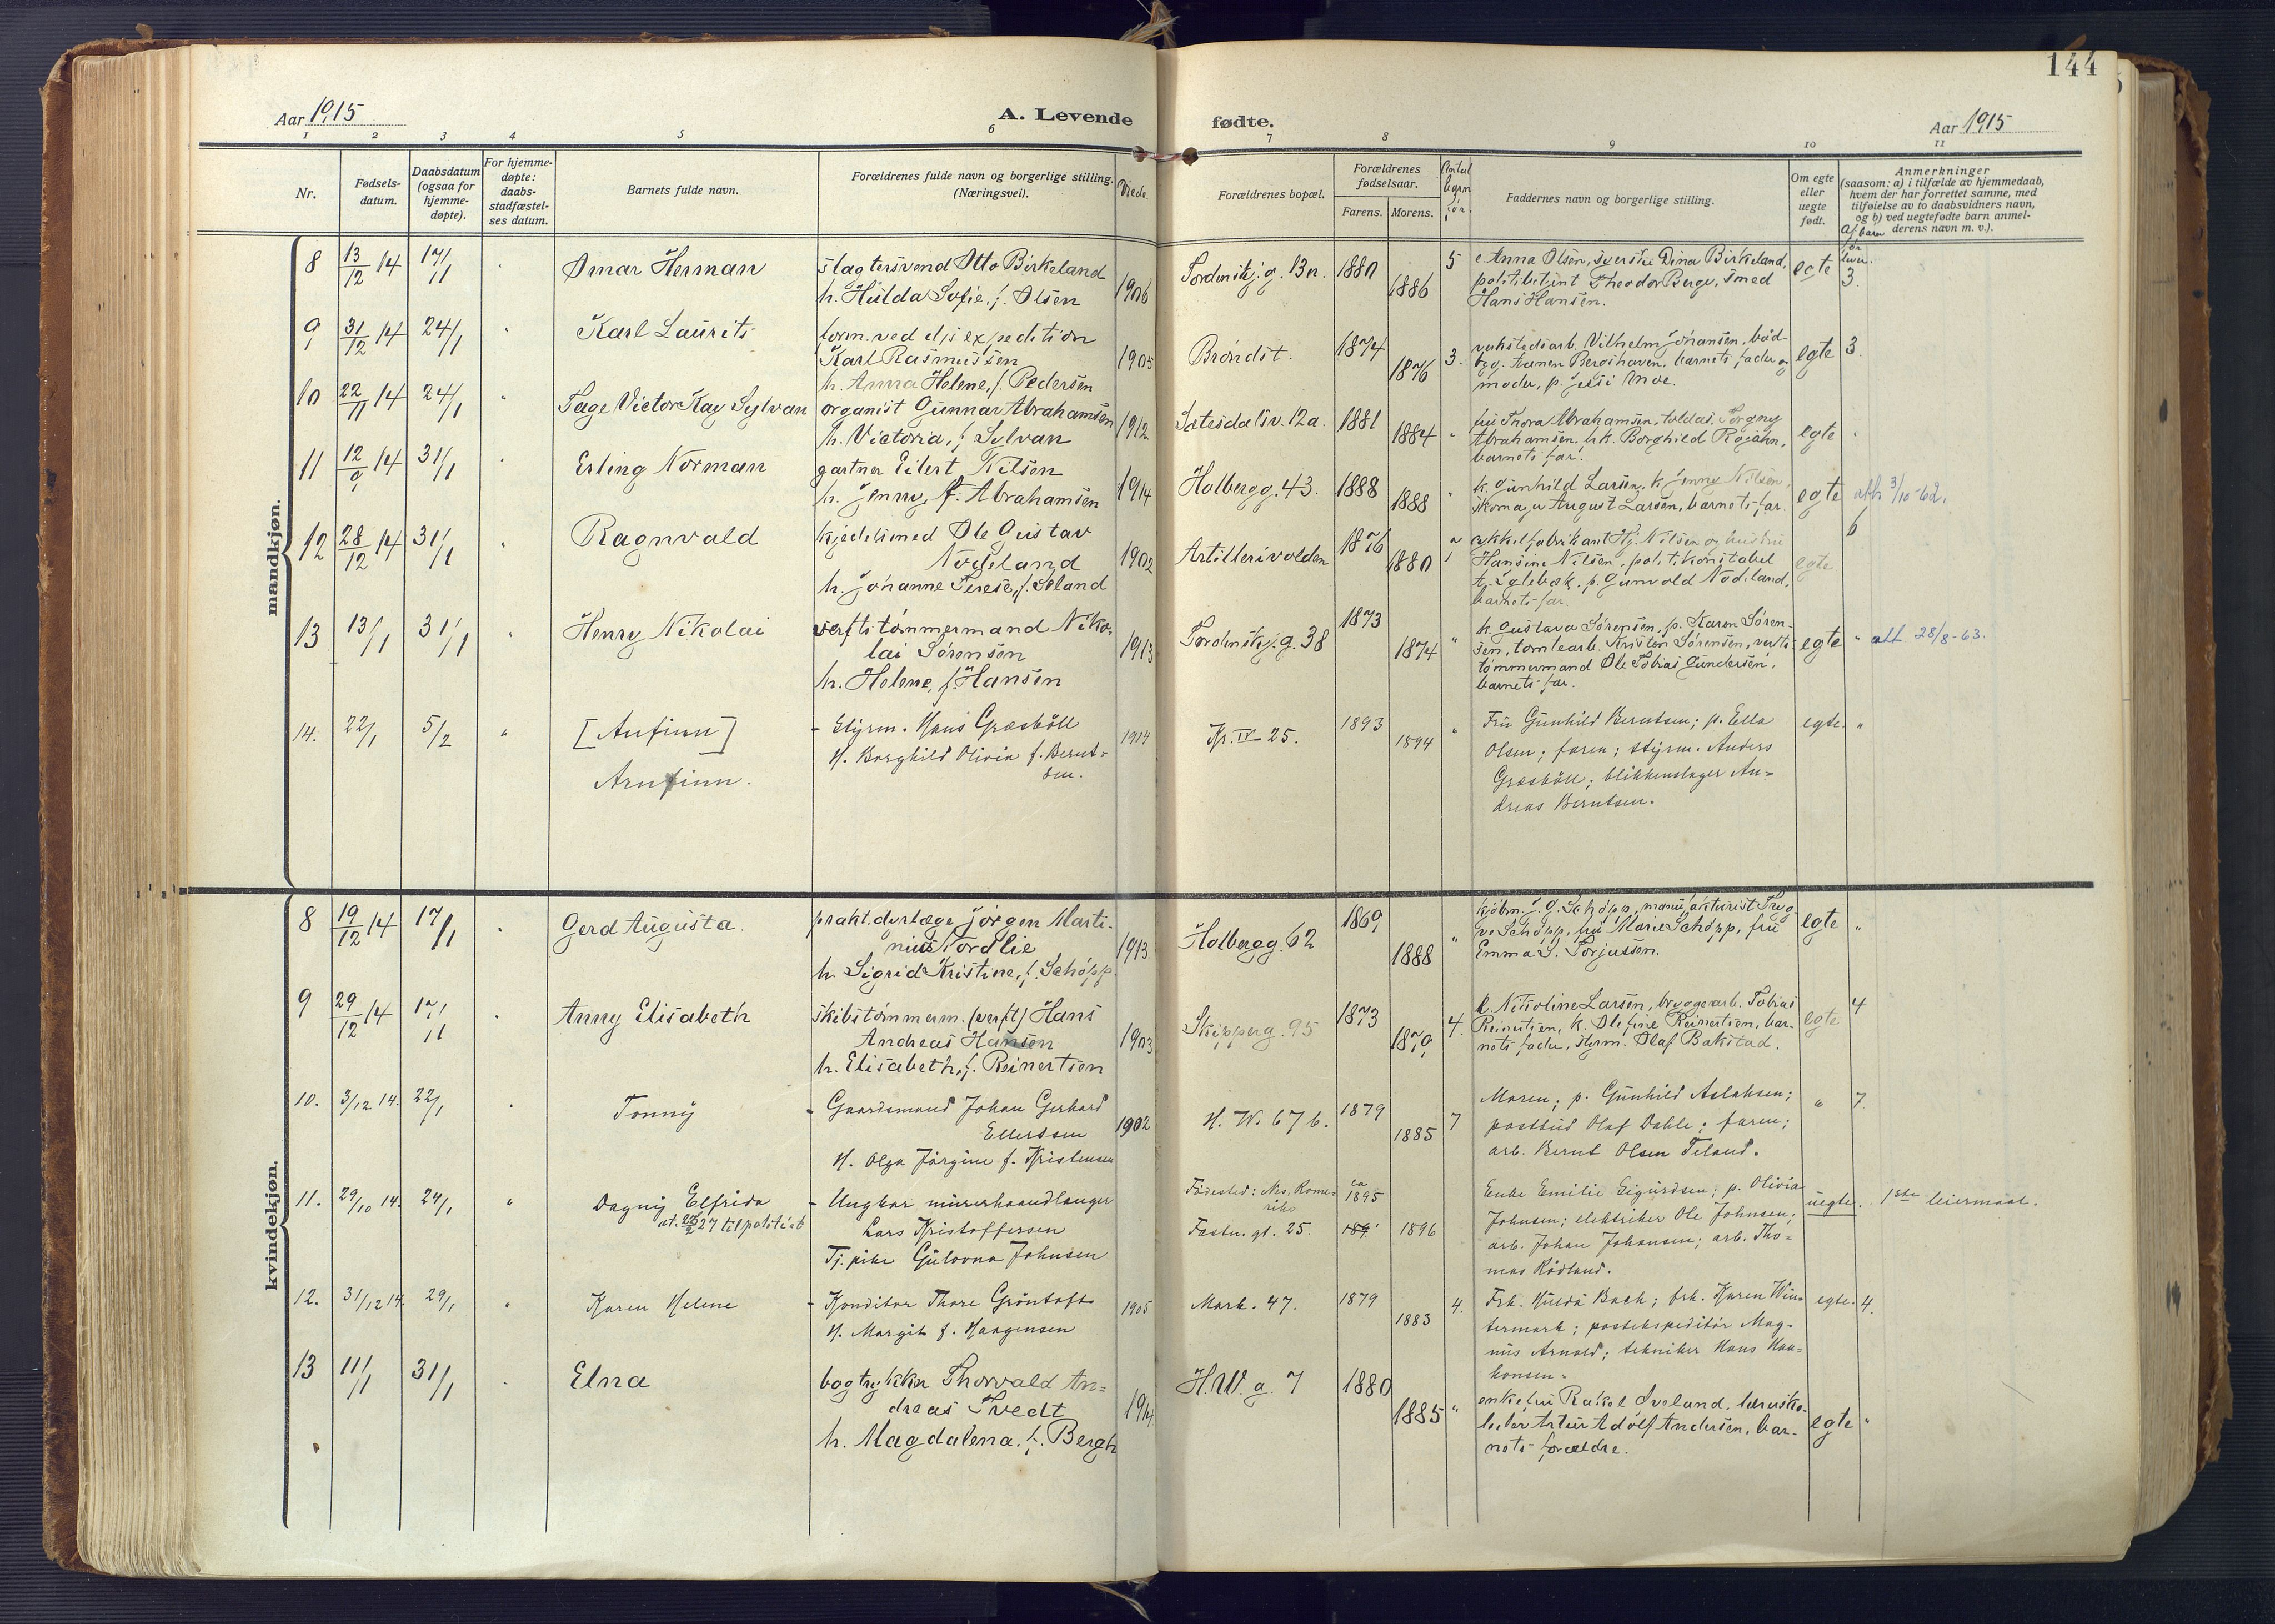 144
Aar 1915
A. Levende
fødte.
Aar 1915
1 2 3 4 5 6 7 8 9 10 11
Nr.
Fødsels-
datum.
Daabsdatum
(ogsaa for
hjemme-
døpte).
For hjemme-
døpte:
daabs-
stadfæstel-
ses datum.
Barnets fulde navn.
Forældrenes fulde navn og borgerlige stilling.
(Næringsvei).
Viede.
Forældrenes bopæl.
Forældrenes
fødselsaar.
Farens. Morens.
Antal
barn
før.
Faddernes navn og borgerlige stilling.
Om egte
eller
uegte
født.
Anmerkninger
(saasom: a) i tilfælde av hjemmedaab,
hvem der har forrettet samme, med
tilføielse av to daabsvidners navn,
og b) ved uegtefødte barn anmel-
derens navn m. v.).
Af barn
mandkjøn.
8 13/12 14 17/1 Omar Herman
slagtersvend Otto Birkeland
h. Hulda Sofie, f. Olsen
1906 Tordenskj. g. 13 1880 1886 5
e. Anna Olsen, syerske Dina Birkeland,
politibetjent Theodor Berge, smed
Hans Hansen.
egte 3.
9 31/12 14 24/1 Karl Laurits
form. ved dsexpedition
Karl Rasmussen
h. Anna Helene, f. Pedersen
1905 Brøndst. 1874 1876 3.
verkstedsarb. Vilhelm Johansen, bød-
Aanen Bergshaven, barnets fader og
moder, p. Moe.
egte 3.
10 22/11 14 24/1 Tage Victor Kay Sylvan
organist Gunnar Abrahamsen
h. Victoria, f. Sylvan
1912 Sætesdalsv. 12a. 1881 1884 "
fru Thora Abrahamsen, toldas. Torgny
Abrahamsen, frk. Borghild Røjahn,
barnets far.
egte
11 12/9 14 31/1 Erling Norman
gartner Eilert Nilsen
h. Jenny, f. Abrahamsen
1914 Holbergg. 43. 1888 1888 "
k. Gunhild Larsen, k. Jenny Nilsen,
skomager August Larsen, barnets far.
egte att. 3/10-62.
12 28/12 14 31/1 Ragnvald
kjedelsmed Ole Gustav
Nodeland
h. Johanne Terese, f. Leland
1902 Artillerivolden 1876 1880
cykkelfabrikant Hj. Nilsen og hustru
Hansine Nilsen, politikonstabel
p. Gunvold Nodeland,
barnets far.
egte 6
13 13/1 31/1 Henry Nikolai
verftstømmermand Niko-
lai Sørensen
h. Helene, f. Hansen
1913 Tordenskj. g. 38 1873 1874 "
k. Gustava Sørensen, p. Karen Søren-
sen, tomtearb. Kristen Sørensen, verfts-
tømmermand Ole Tobias Gundersen,
barnets far.
egte " att. 28/8-63.
14. 22/1 5/2 " [Anfinn]
Arnfinn.
- Styrm. Hans Græsbøll
H. Borghild Olivia f. Bernt-
sen.
1914 Kr. IV-25. 1893 1894 "
Fru Gunhild Berntsen; p. Ella
Olsen; faren; styrm. Anders
Græsbøll; blikkenslager An-
dreas Berntsen.
egte. "
kvindekjøn.
8 19/12 14 17/1 Gerd Augusta.
prakt. dyrlæge Jørgen Marti-
nius Nordlie
h. Sigrid Kristine, f. Schöpp
1913. Holbergg. 62 1869 1888 "
kjøbm. J. G. Schöpp, manufakturist Tryg-
ve Schöpp, fru Marie Schöpp, fru
Emma S. Torjussen.
egte "
9 29/12 14 17/1 Anny Elisabeth
skibstømmerm. (verft) Hans
Andreas Hansen
h. Elisabeth, f. Reinertsen
1903 Skipperg. 95 1873 1879 4.
k. Nikoline Larsen, bryggearb. Tobias
Reinertsen, k. Olefine Reinertsen, bar-
nets fader, styrm. Olaf Bakstad.
egte 4
10. 3/12 14. 22/1 Tonny
- Gaardsmand Johan Gerhard
Ellertsen
H. Olga Jørgine f. Kristensen
1902 H. W. 67 b. 1879 1885 7
Moren; p. Gunhild Aslaksen;
postbud Olaf Dahle; faren;
arb. Bernt Olsen Teland.
" 7.
11. 29/10 14. 24/1 " Dagny Elfrida
at. 27 til politiet
- Ungkar murerhaandlanger
Lars Kristoffersen
Tj. pike Gulovna Johnsen
Fødested: Nes, Rome-
rike
Fæstn. gt. 25.
ca 1895 1896
Enke Emilie Sigurdsen; p. Olivia
Johnsen; elektriker Ole Johnsen;
arb. Johan Johansen; arb. Tho-
mas Rødland.
uegte. 1ste leiermaal.
12. 31/12 14. 29/1 " Karen Helene
- Konditor Thore Grøntoft
H. Margit f. Haagensen
1905 Mark. 47. 1879 1883 4.
Frk. Hulda Bach; frk. Karen Win-
termark; postekspeditør Mag-
nus Arnold; tekniker Hans Haa-
konsen.
egte. 4.
13 11/1 31/1 Elna
bogtrykker Thorvald An-
dreas Tvedt
h. Magdalena, f. Bergh
1914 H.W. g. 7 1880 1885 "
enkefru Rakel Øveland,
Artur Adolf Andersen, bar-
nets forældre.
egte "